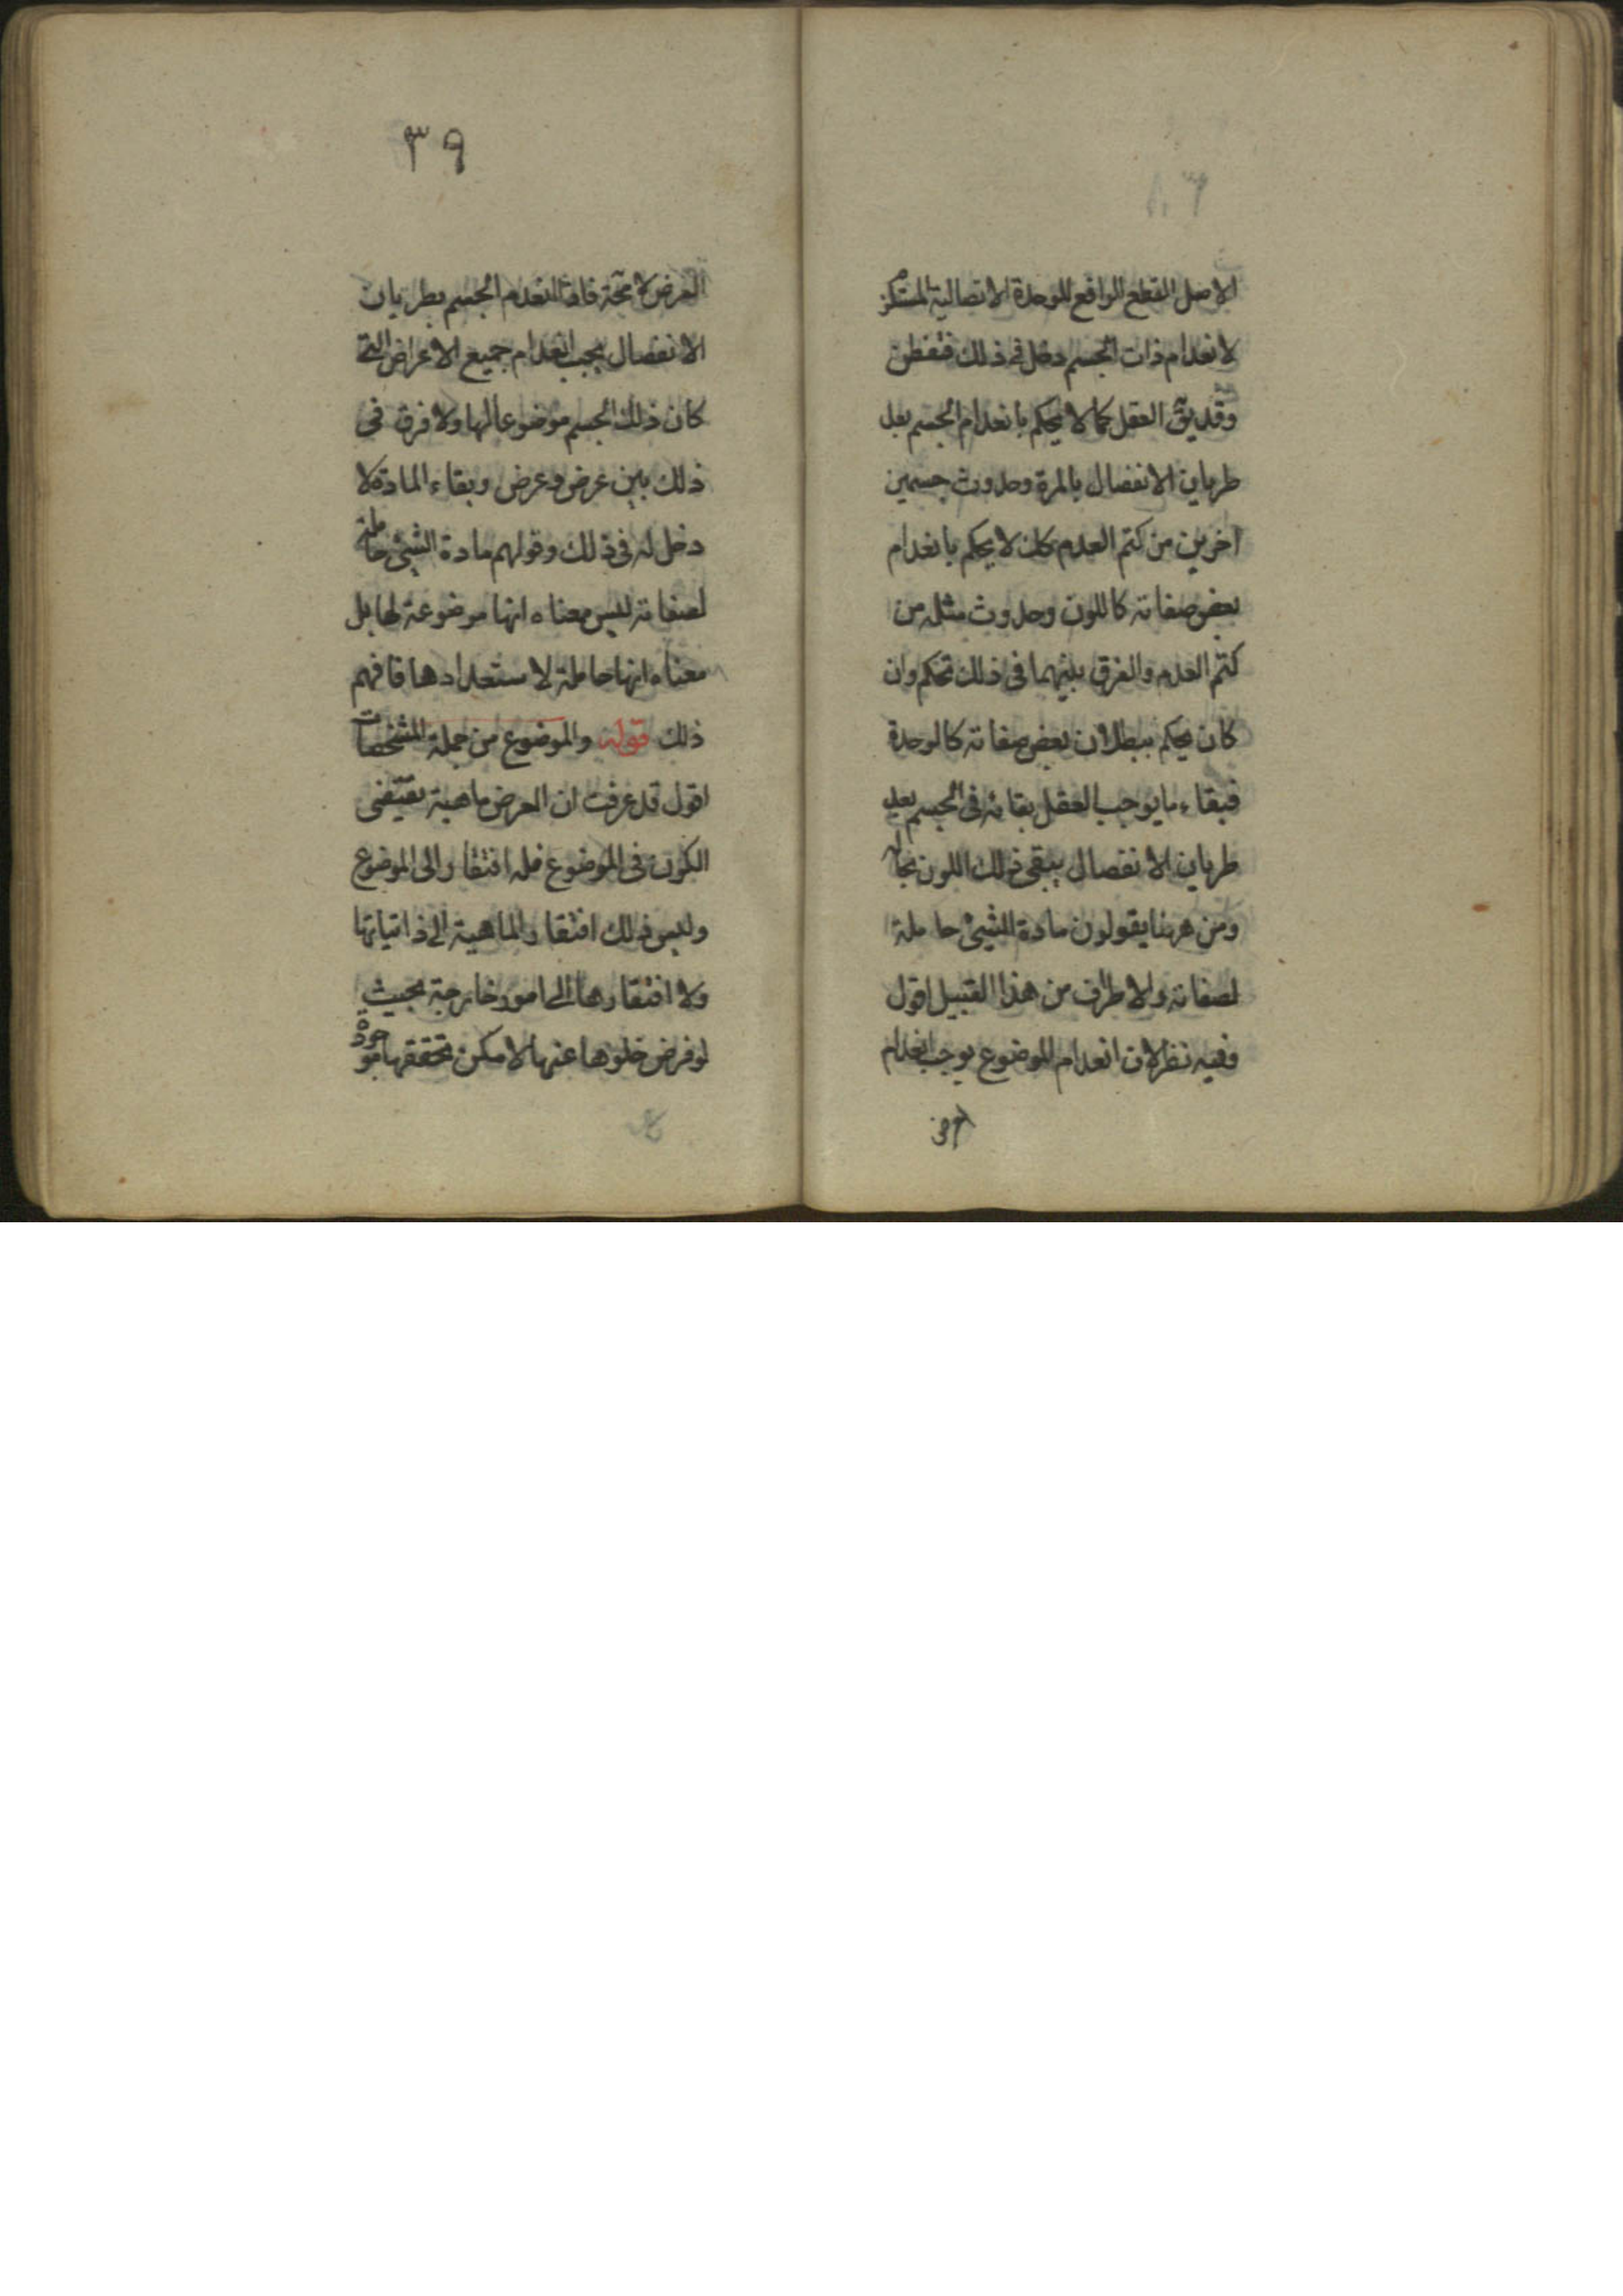 الاصل القطع الرافع للوحدة الاتصالية المستلزم
لانعدام ذات الجسم دخل فى ذلك فتفطن
وقد يق العقل كما لا يحكم بانعدام الجسم بعد
طريان الانفصال بالمرة وحدوث جسمين
اخرين من كتم العدم كك لا يحكم بانعدام
بعض صفاته كاللون وحدوث مثله من
كتم العدم والفرق بينهما فى ذلك تحكم وان
كان يحكم ببطلان بعض صفاته كالوحدة
فبقاء ما يوجب العقل بقائه فى الجسم بعد
طريان الانفصال يبقى ذلك اللون بحاله
ومن ههنا يقولون مادة الشىء حاملة
لصفاته والاطراف من هذا القبيل اقول
وفيه نظر لان انعدام الموضوع يوجب انعدام
العرض
٣٩
العرض لا محة فاذا انعدم الجسم بطريان
الانفصال يجب انعدام جميع الاعراض التى
كان ذلك الجسم موضوعا لها ولا فرق فى
ذلك بين عرض وعرض وبقاء المادة لا
دخل له فى ذلك وقولهم مادة الشىء حاملة
لصفاته ليس معناه انها موضوعة لها بل
معناه انها حاملة لاستعدادها فافهم
ذلك قوله والموضوع من جملة المشخصات
اقول قد عرفت ان العرض ماهية تقتضى
الكون فى الموضوع فله افتقار الى الموضوع
وليس ذلك افتقار الماهية الى ذاتياتها
ولا افتقارها الى امور خارجة بحيث
لو فرض خلوها عنها لامكن تحققها موجودة